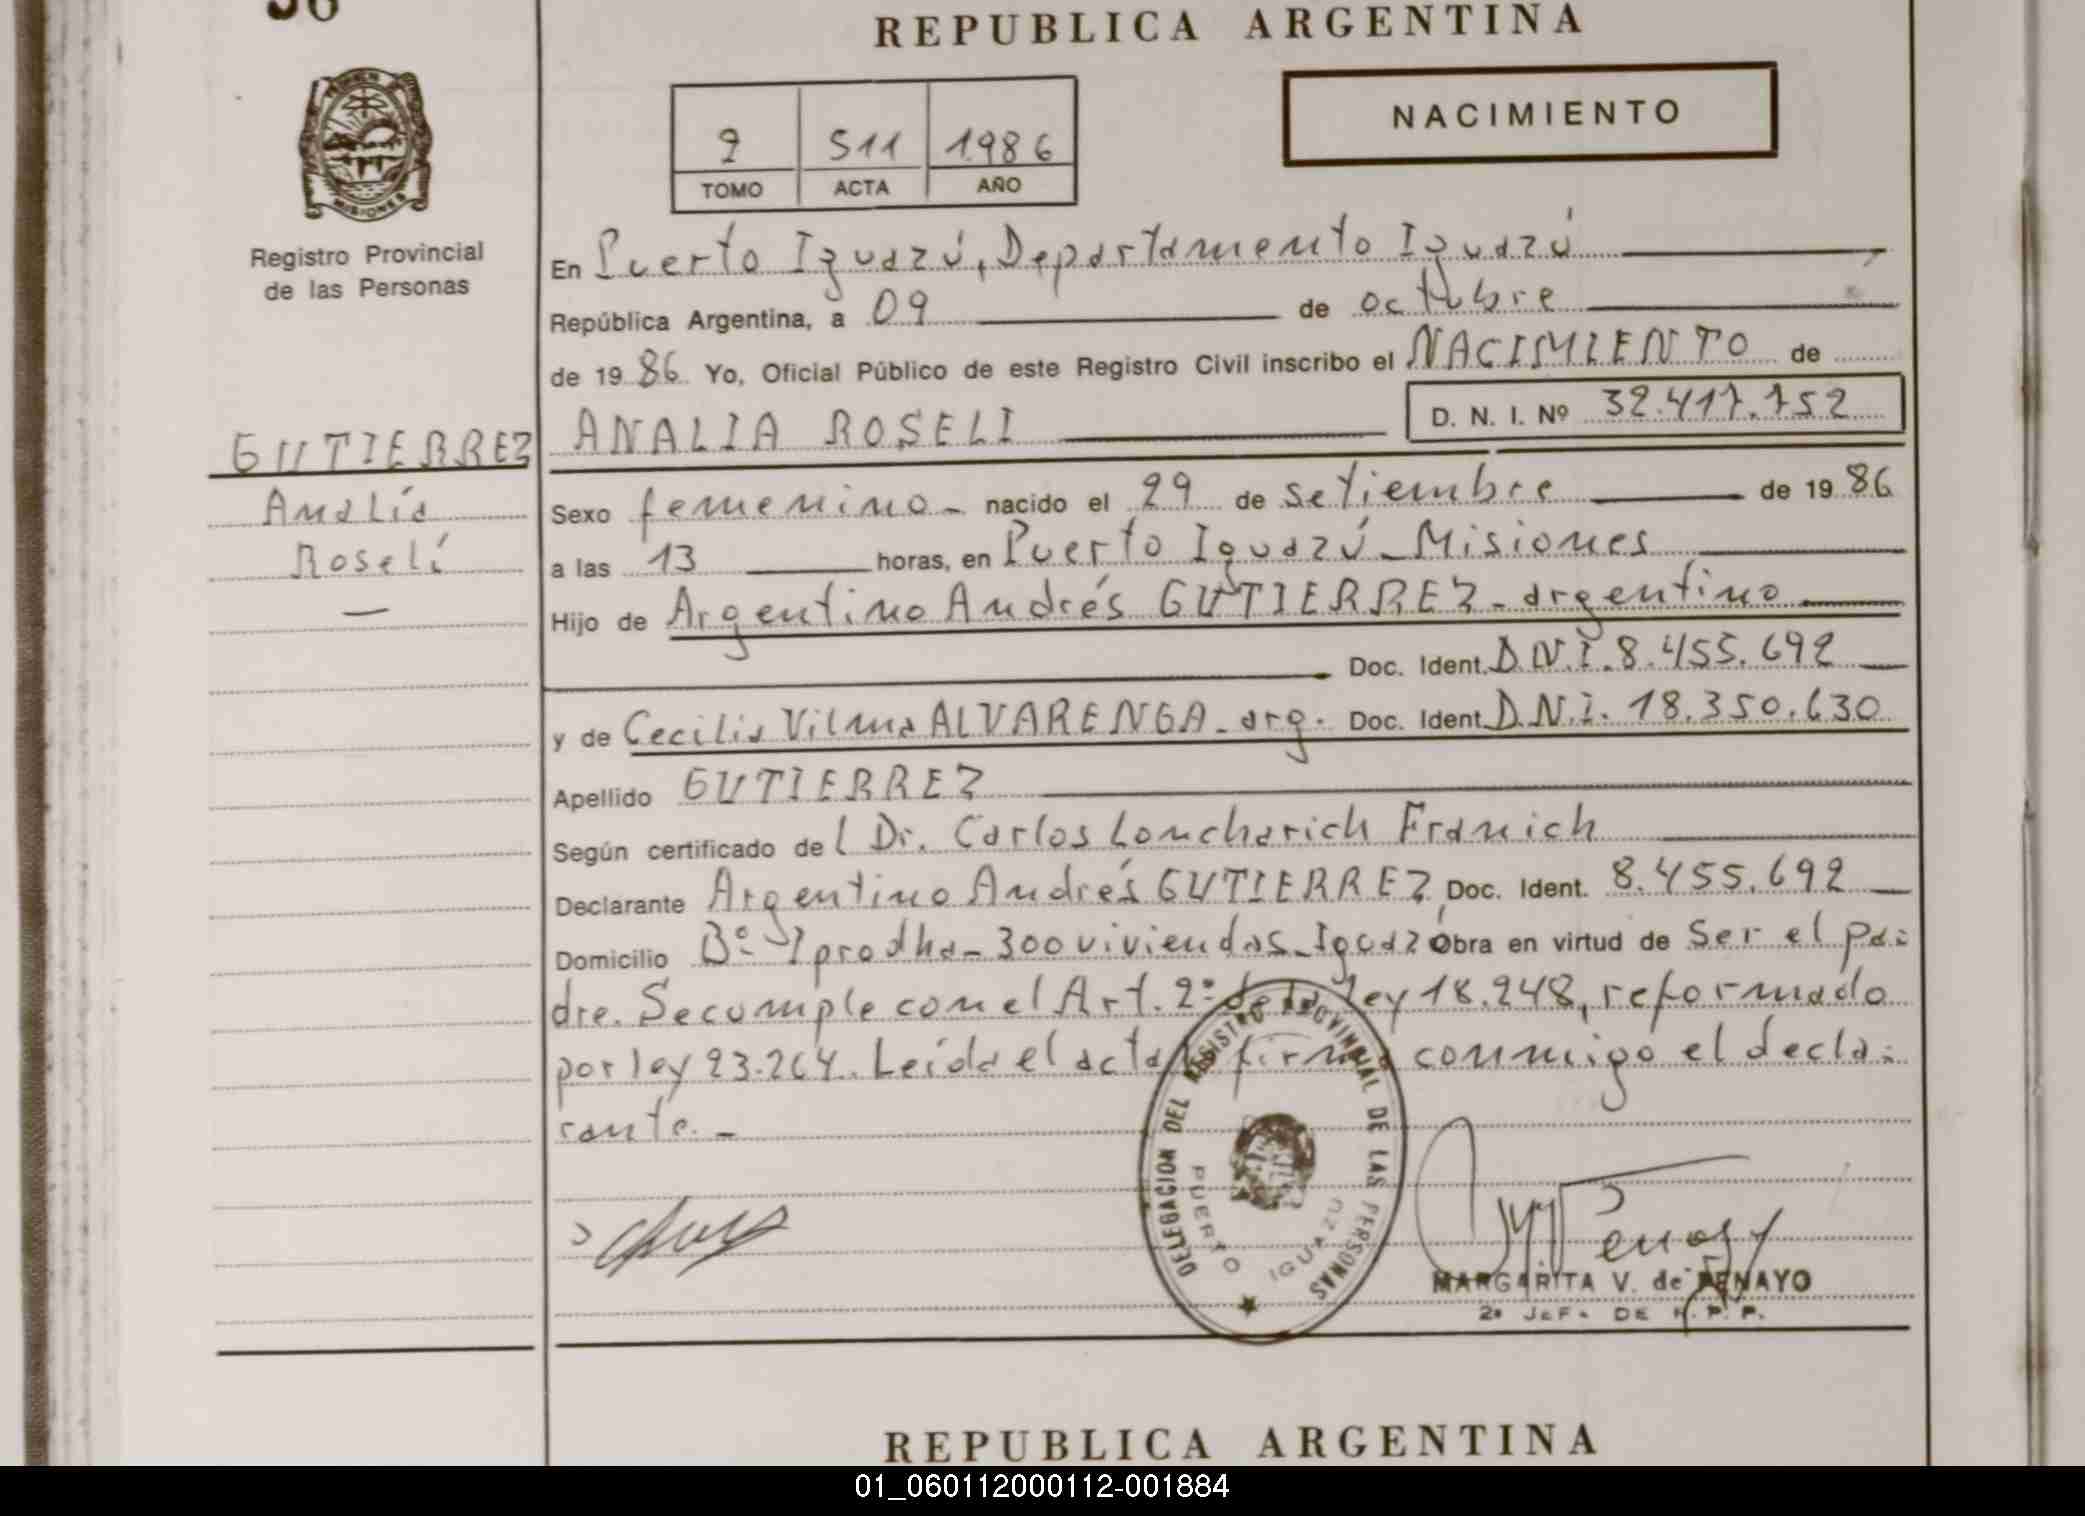 REPUBLICA ARGENTINA
MISIONES
Registro Provincial
de las Personas
2 511 1986
TOMO ACTA AÑO
NACIMIENTO
En Puerto Iguazú, Departamento Iguazú
República Argentina, a 09 de octubre
de 1986 Yo, Oficial Público de este Registro Civil inscribo el NACIMIENTO de
ANALIA ROSELI D. N. I. Nº 32.417.752
GUTIERREZ
Analía
Roselí
Sexo femenino - nacido el 29 de setiembre de 1986
a las 13 horas, en Puerto Iguazú - Misiones
Hijo de Argentino Andrés GUTIERREZ - argentino
Doc. Ident. D.N.I. 8.455.692
y de Cecilia Vilma ALVARENGA - arg. Doc. Ident. D.N.I. 18.350.630
Apellido GUTIERREZ
Según certificado de l Dr. Carlos Loncharich Franich
Declarante Argentino Andrés GUTIERREZ Doc. Ident. 8.455.692
Domicilio Bº Iprodha - 300 viviendas - Iguazú Obra en virtud de Ser el pa-
dre. Se cumple con el Art. 2º de la ley 18.248, reformado
por ley 23.264. Leída el acta firma conmigo el decla-
rante. -
DELEGACION DEL REGISTRO PROVINCIAL DE LAS PERSONAS
PUERTO IGUAZU
MARGARITA V. de PENAYO
2º JEFA DE R. P. P.
REPUBLICA ARGENTINA
01_060112000112-001884